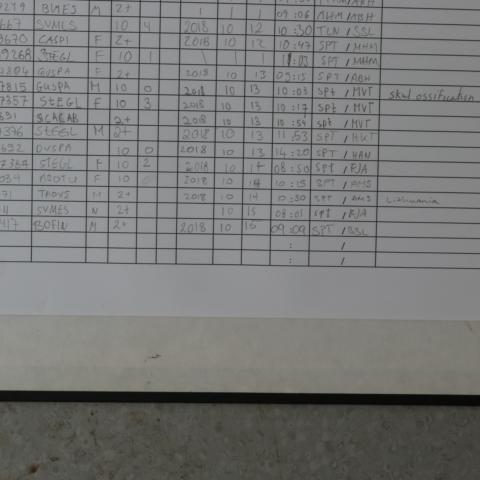 BUNES M 2+ 09:06 AHM/ABH
667 SVMES 10 4 2018 10 12 10:30 TLN / SSL
3670 CASPI F 2+ 2018 10 12 10:47 SPT / MHM
9268 STEGL F 10 1 11:03 SPT / MHM
GUSPA F 2+ 2018 10 13 09:15 SPT / ABH
7815 GUSPA M 10 0 2018 10 13 10:03 Spt / MVT skul ossification
7357 STEGL F 10 3 2018 10 13 10:17 SPT / MVT
SCABAB 2+ 2018 10 13 10:54 SPT / MVT
7376 STEGL M 2+ 2018 10 13 11:53 SPT / MVT
692 OUSPA 10 0 2018 10 13 14:20 SPT / HAN
7364 STEGL F 10 2 2018 10 14 08:50 SPT / RJA
034 F 10 2018 10 14 10:15 SPT / AMS
71 M 2+ 2018 10 14 10:30 SPT / AMS Lithuania
11 SVMES N 2+ 10 15 08:01 SPT / RJA
417 BOFIN M 2+ 2018 10 15 09:09 SPT / SSL
: /
: /